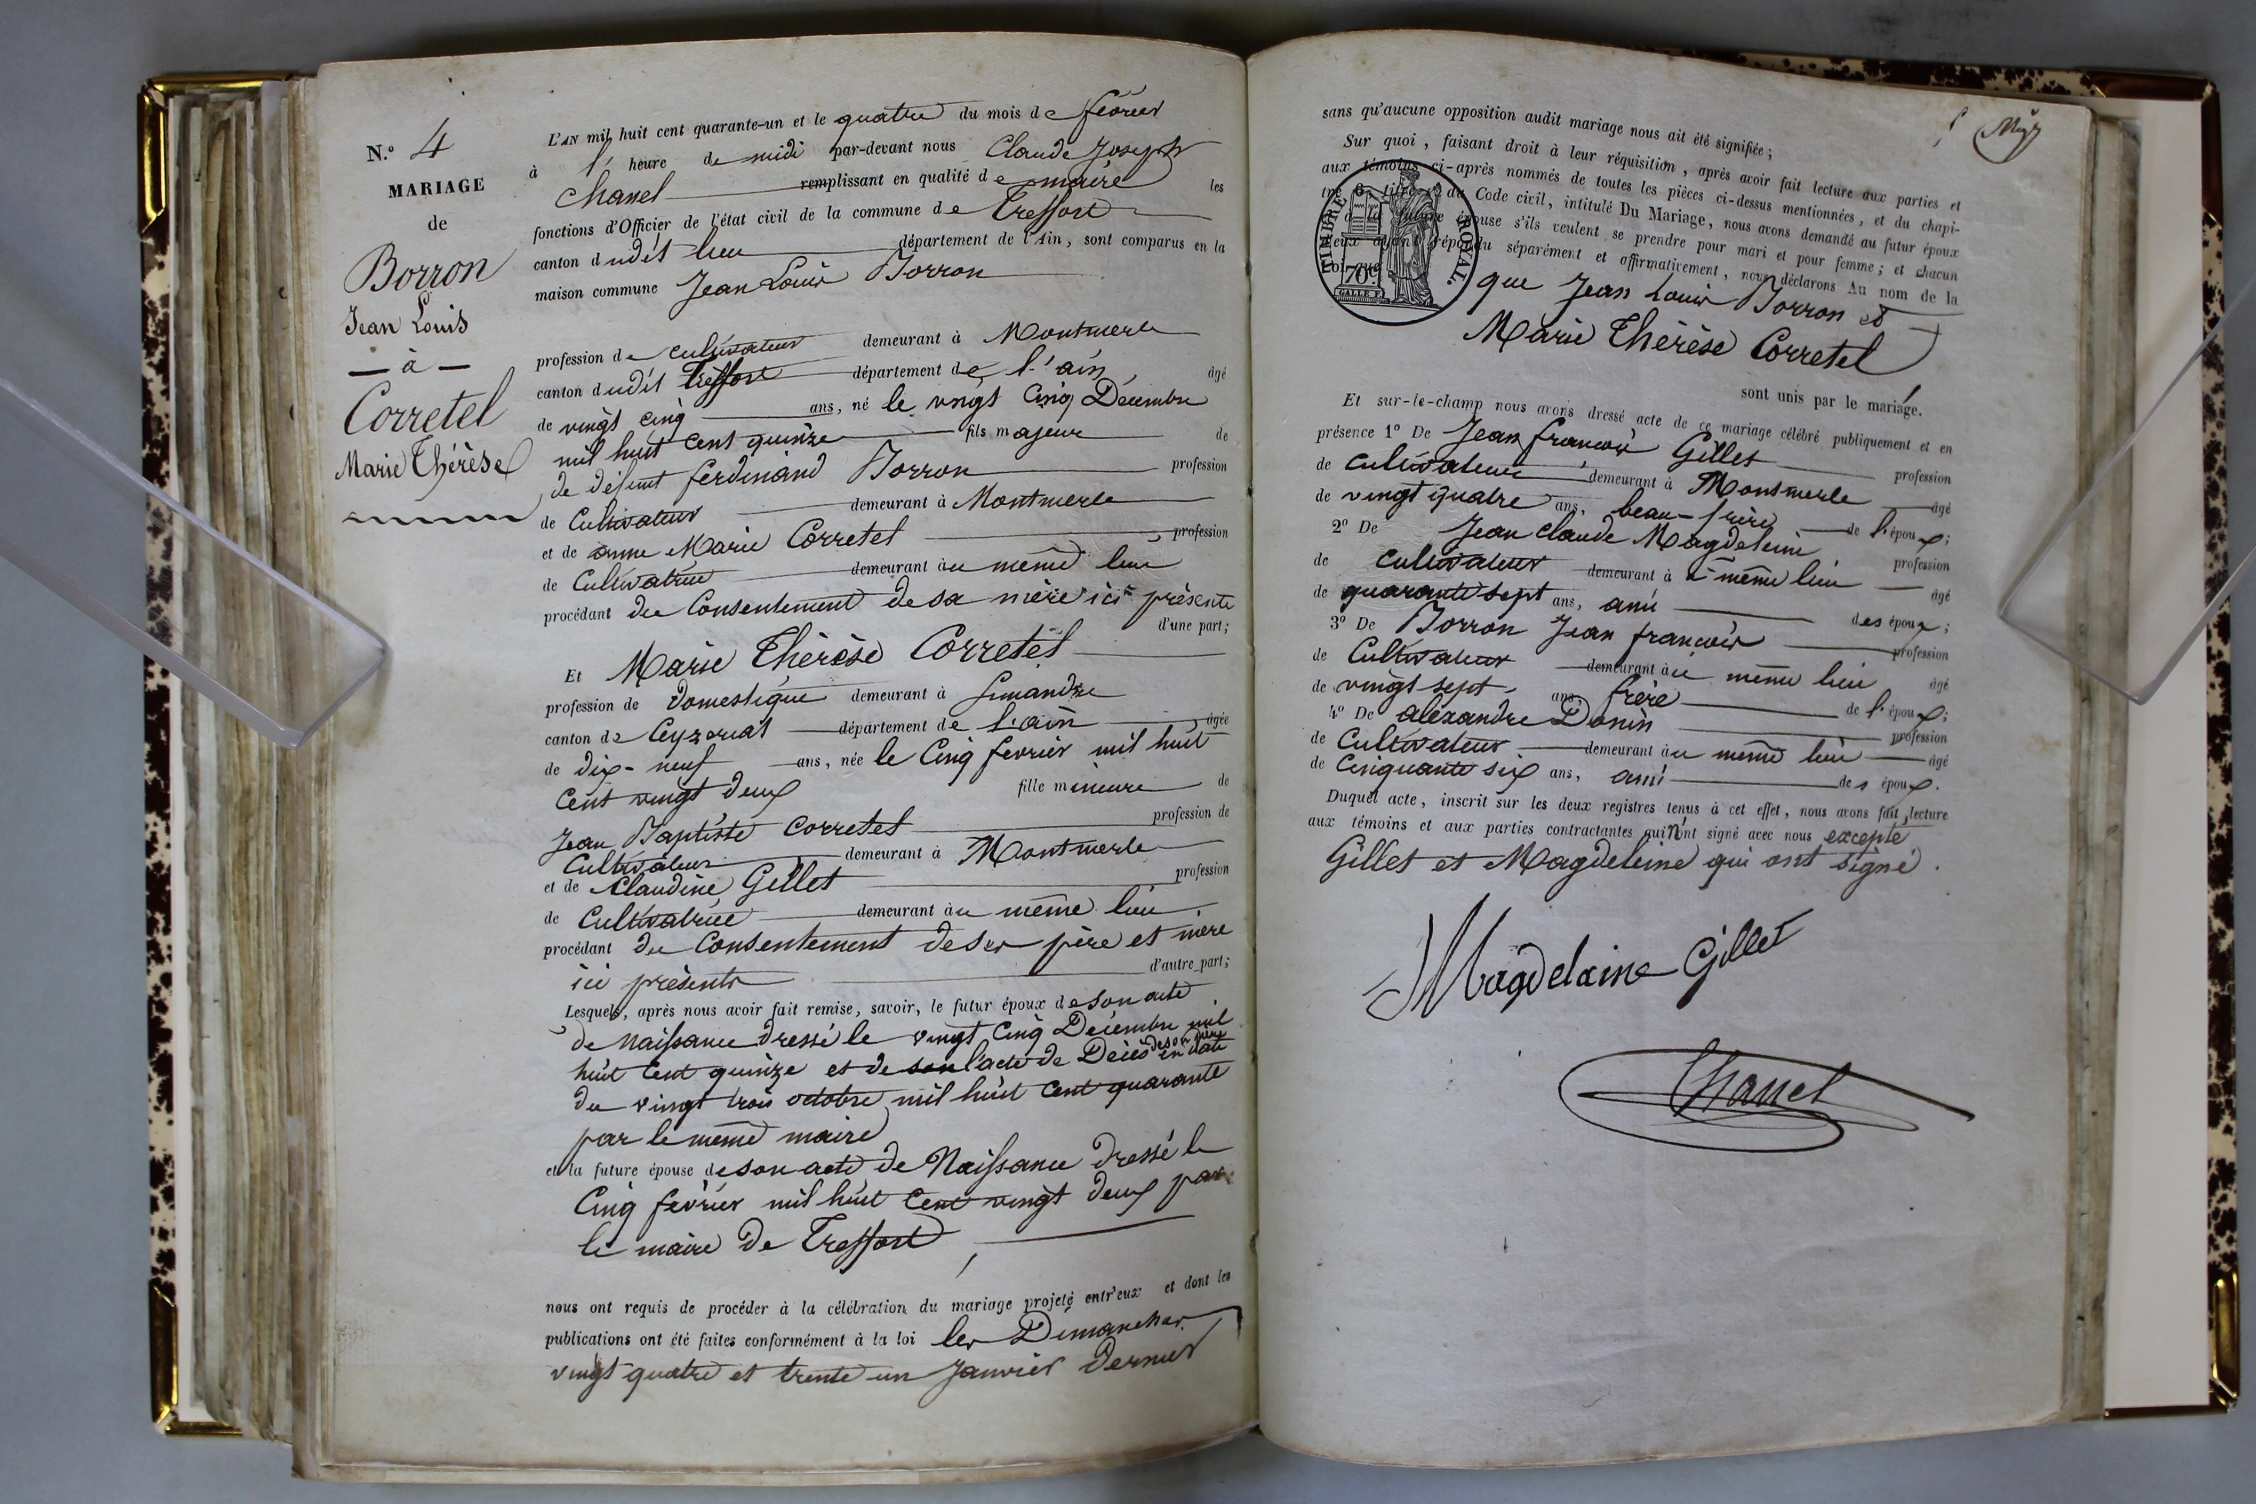 N.° 4
MARIAGE
de
Borron
Jean Louis
— à —
Corretel
Marie Thérèse
L'AN mil huit cent quarante-un et le quatre du mois de février
à l' heure de midi par-devant nous Claude Joseph
Chanel remplissant en qualité de maire les
fonctions d'Officier de l'état civil de la commune de Treffort
canton dudit lieu département de l'Ain, sont comparus en la
maison commune Jean Louis Borron
profession de cultivateur demeurant à Montmerle
canton dudit Treffort département de l'ain, âgé
de vingt cinq ans, né le vingt Cinq Décembre
mil huit cent quinze fils majeur de
de défunt ferdinand Borron profession
de Cultivateur demeurant à Montmerle
et de anne Marie Corretel profession
de Cultivatrice demeurant au même lieu
procédant du Consentement de sa mère ici présente
d'une part;
Et Marie Thérèse Corretel
profession de domestique demeurant à Simandre
canton de Ceyzeriat département de l'ain âgée
de dix-neuf ans, née le Cinq fevrier mil huit
Cent vingt deux fille mineure de
Jean Baptiste Corretel profession de
Cultivateur demeurant à Montmerle
et de Claudine Gillet profession
de Cultivatrice demeurant au même lieu
procédant du Consentement de ses père et mère
ici présents d'autre part;
Lesquels, après nous avoir fait remise, savoir, le futur époux de son acte
de Naissance dressé le vingt Cinq Décembre mil
huit Cent quinze et de son l'acte de Décès de son père en date
du vingt trois octobre mil huit Cent quarante
par le même maire
et la future épouse de son acte de Naissance dressé le
Cinq fevrier mil huit Cent vingt deux par
le maire de Treffort
nous ont requis de procéder à la célébration du mariage projeté entr'eux et dont les
publications ont été faites conformément à la loi les Dimanches
vingt quatre et trente un Janvier Dernier
sans qu'aucune opposition audit mariage nous ait été signifiée;
Sur quoi, faisant droit à leur réquisition, après avoir fait lecture aux parties et
aux témoins ci-après nommés de toutes les pièces ci-dessus mentionnées, et du chapi-
tre 6, titre du Code civil, intitulé Du Mariage, nous avons demandé au futur époux
à la future épouse s'ils veulent se prendre pour mari et pour femme; et chacun
d'eux ayant répondu séparément et affirmativement, nous déclarons Au nom de la
loi
TIMBRE ROYAL.
70c
que Jean Louis Borron et
Marie Thérèse Corretel
sont unis par le mariage.
Et sur-le-champ nous avons dressé acte de ce mariage célébré publiquement et en
présence 1° De Jean francois Gillet profession
de cultivateur demeurant à Montmerle âgé
de vingt quatre ans, beau-frère de l'époux;
2° De Jean Claude Magdeleine profession
de cultivateur demeurant à même lieu âgé
de quarante sept ans, ami des époux;
3° De Borron Jean francois profession
de Cultivateur demeurant au même lieu âgé
de vingt sept ans, frère de l'époux;
4° De alexandre Donin profession
de Cultivateur demeurant au même lieu âgé
de Cinquante six ans, ami des époux.
Duquel acte, inscrit sur les deux registres tenus à cet effet, nous avons fait lecture
aux témoins et aux parties contractantes qui n'ont signé avec nous excepté
Gillet et Magdeleine qui ont signé.
Magdelaine Gillet
Chanel